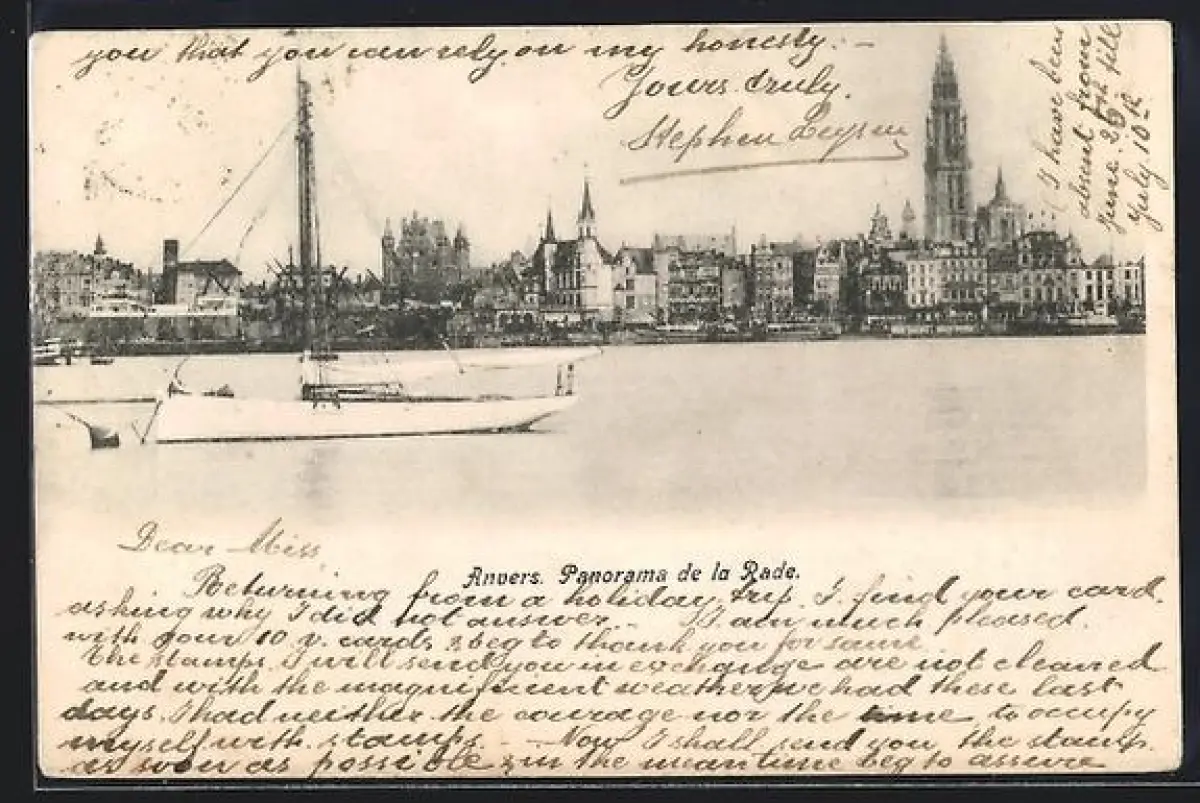 Dear Miss
Anvers. Panorama de la Rade.
Returning from a holiday trip I find your card.
asking why I did not answer. - I am much pleased.
with your 10 v. cards & beg to thank you for same
The stamps I will send you in exchange are not cleared
and with the magnificent weather we had these last
days I had neither the courage nor the time to occupy
myself with stamps. - Now I shall send you the stamps
as soon as possible & in the meantime beg to assure
you that you can rely on my honesty. -
Yours truly.
Stephen
I have been
absent from
June 26th till
July 10th